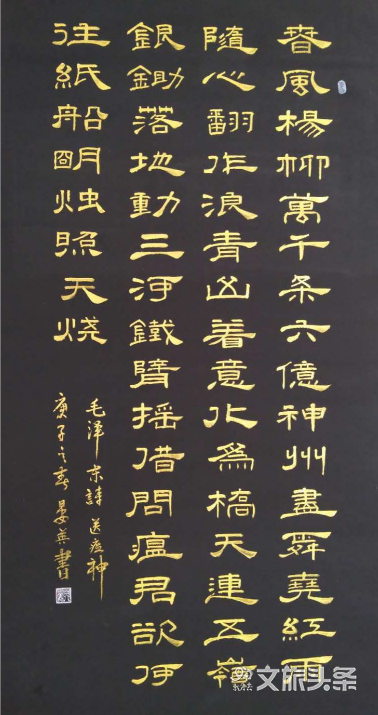 春風楊柳萬千条六億神州盡舜堯紅雨
隨心翻作浪青山着意化為橋天連五嶺
銀鋤落地動三河鐵臂摇借問瘟君欲何
往紙船朙烛照天烧
毛泽东詩送瘟神
庚子之春晏英書
文旅头条